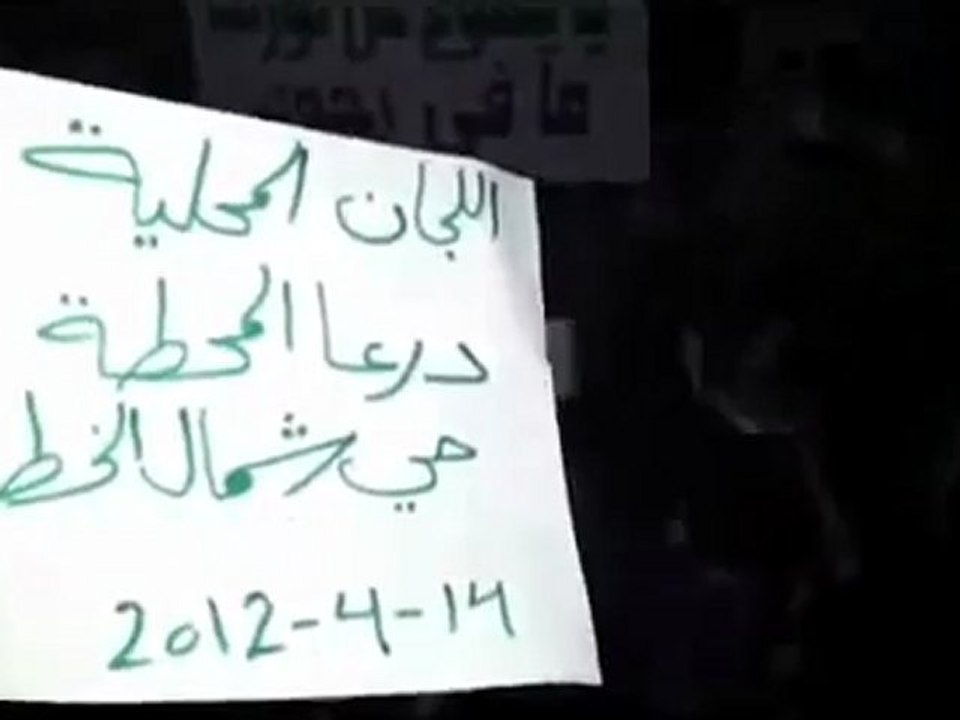 ما في
اللجان المحلية
درعا المحطة
حي شمال الخط
2012-4-14